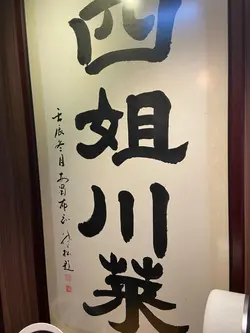 四姐川菜
壬辰冬月